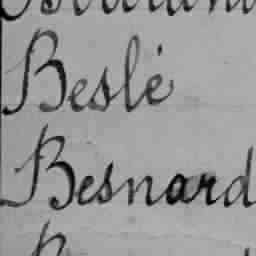 Beslé
Besnard